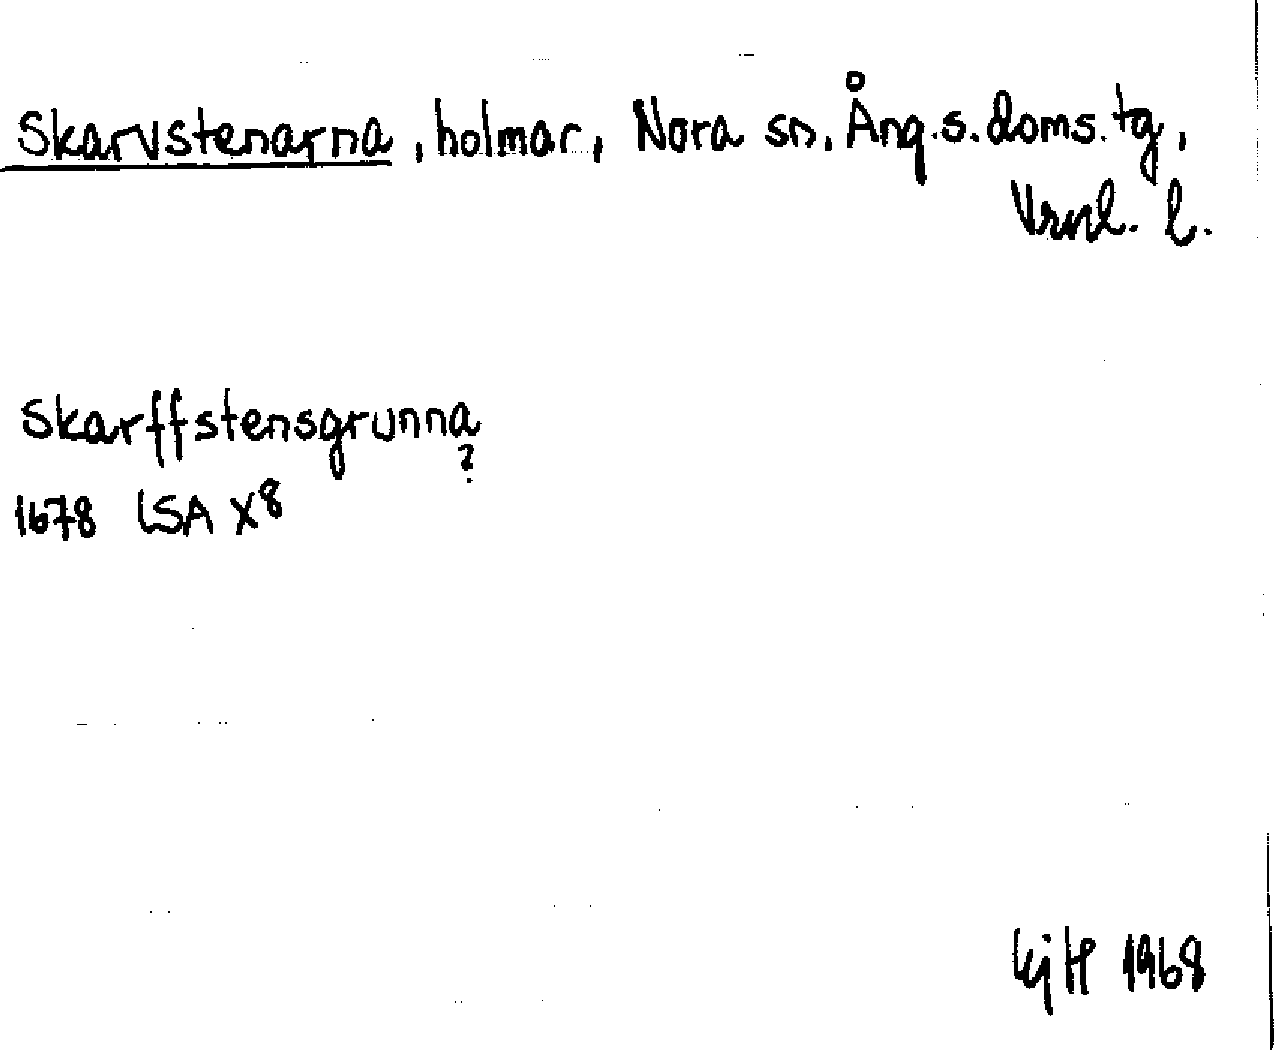 Skarvstenarna, holmar, Nora sn. Ång.s.doms.tg,
Vrnl. l.
Skarffstensgrunna
?
1678 LSA X8
1968